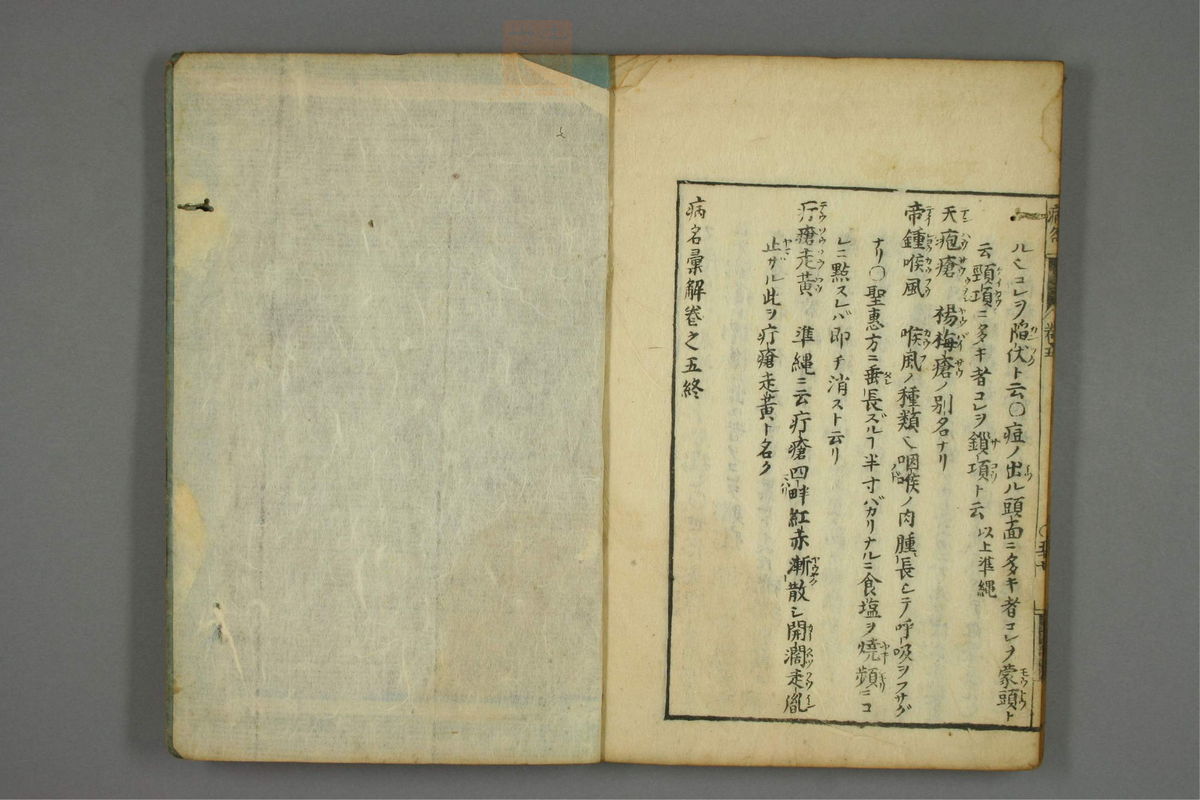 ル〆コレヲ陥伏ト云〇痘ノ出ル頭面ニ多キ者コレヲ蒙頭ト
云頸項ニ多キ者コレヲ鎖項ト云 以上準縄
天疱瘡 楊梅瘡ノ別名ナリ
帝鍾喉風 喉風ノ種類〆咽喉ノ肉腫長シテ呼吸ヲフサグ
ナリ〇聖惠方ニ垂長ズルヿ半寸バカリナルニ食塩ヲ燒頻ニコ
レニ點スレバ即チ消スト云リ
疔瘡走黄 準縄ニ云疔瘡四畔紅赤漸散シ開濶走胤
止ザル此ヲ疔瘡走黄ト名ク
病名彙解巻之五終